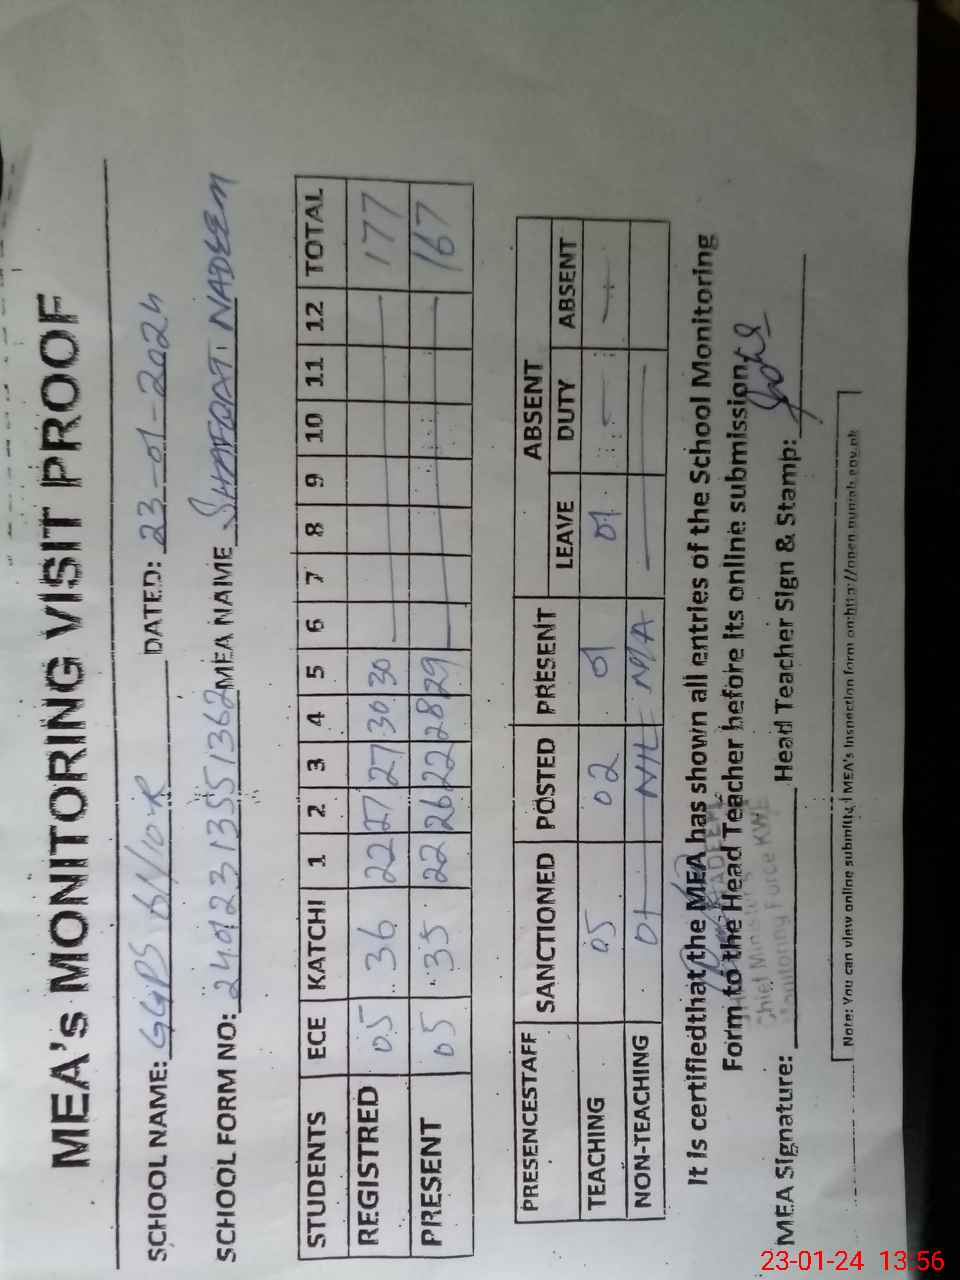 MEA's MONITORING VISIT PROOF
SCHOOL NAME: GGPS 61/10-R DATED: 23-01-2024
SCHOOL FORM NO: 240123135551362 MEA NAME SHAFQAT NADEEM
STUDENTS ECE KATCHI 1 2 3 4 5 6 7 8 9 10 11 12 TOTAL
REGISTRED 05 36 22 27 27 30 30 177
PRESENT 05 35 22 26 22 28 29 167
PRESENCESTAFF SANCTIONED POSTED PRESENT ABSENT
LEAVE DUTY ABSENT
TEACHING 05 02 01 01 - -
NON-TEACHING 01 NIL N/A
It is certifiedthat the MEA has shown all entries of the School Monitoring
Form to the Head Teacher before its online submission.
Chief Minister's
Monitoring Force KWL
MEA Signature: Head Teacher Sign & Stamp:
Note: You can view online submitted MEA's Inspection form on:http://open.punjab.gov.pk
23-01-24 13:56